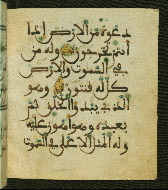 دعوة من الارض اذا
انتم تخرجون وله من
في السموت والارض
كل له قنتون وهو
الذي يبدوا الخلق ثم
يعيده وهو اهون عليه
وله المثل الاعلى في السموت